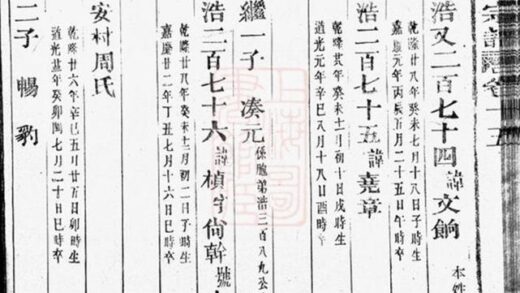 浩又二百七十四諱文餉
乾隆廿八年癸未七月十八日子時生
嘉慶元年丙辰五月二十五日午時卒
本姓
浩二百七十五諱堯章
乾隆年癸未十月初十日戌時生
道光元年辛巳八月十八日酉時
繼一子 湊元 係胞弟浩三百八九公
浩二百七十六諱楨字尙幹號
乾隆廿八年癸未十二月初二日子時生
嘉慶廿二年丁丑七月十六日巳時卒
安村周氏
乾隆廿六年辛巳五月廿五日卯時生
道光年癸卯閏七月二十日巳時卒
二子 暢